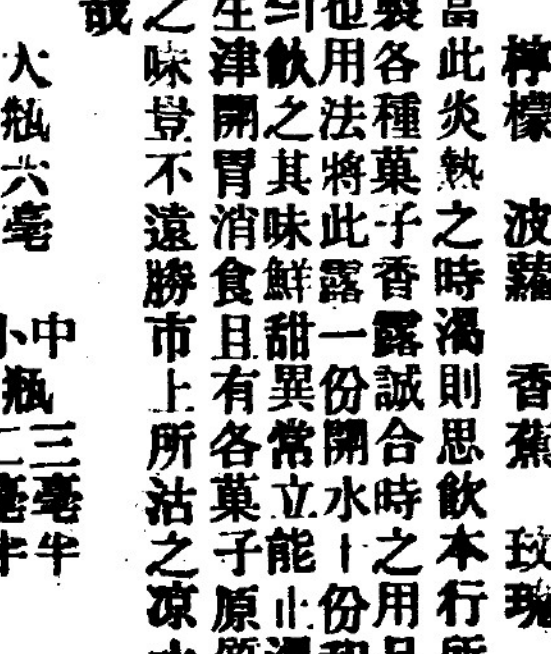 檸檬 波蘿 香蕉 玫瑰
當此炎熱之時渴則思飲本行所
製各種菓子香露誠合時之用品
也用法將此露一份開水十份和
勻飲之其味鮮甜異常立能止渴
生津開胃消食且有各菓子原質
之味豈不遠勝市上所沽之凉水
哉
大瓶六毫 中瓶三毫半
小瓶二毫半